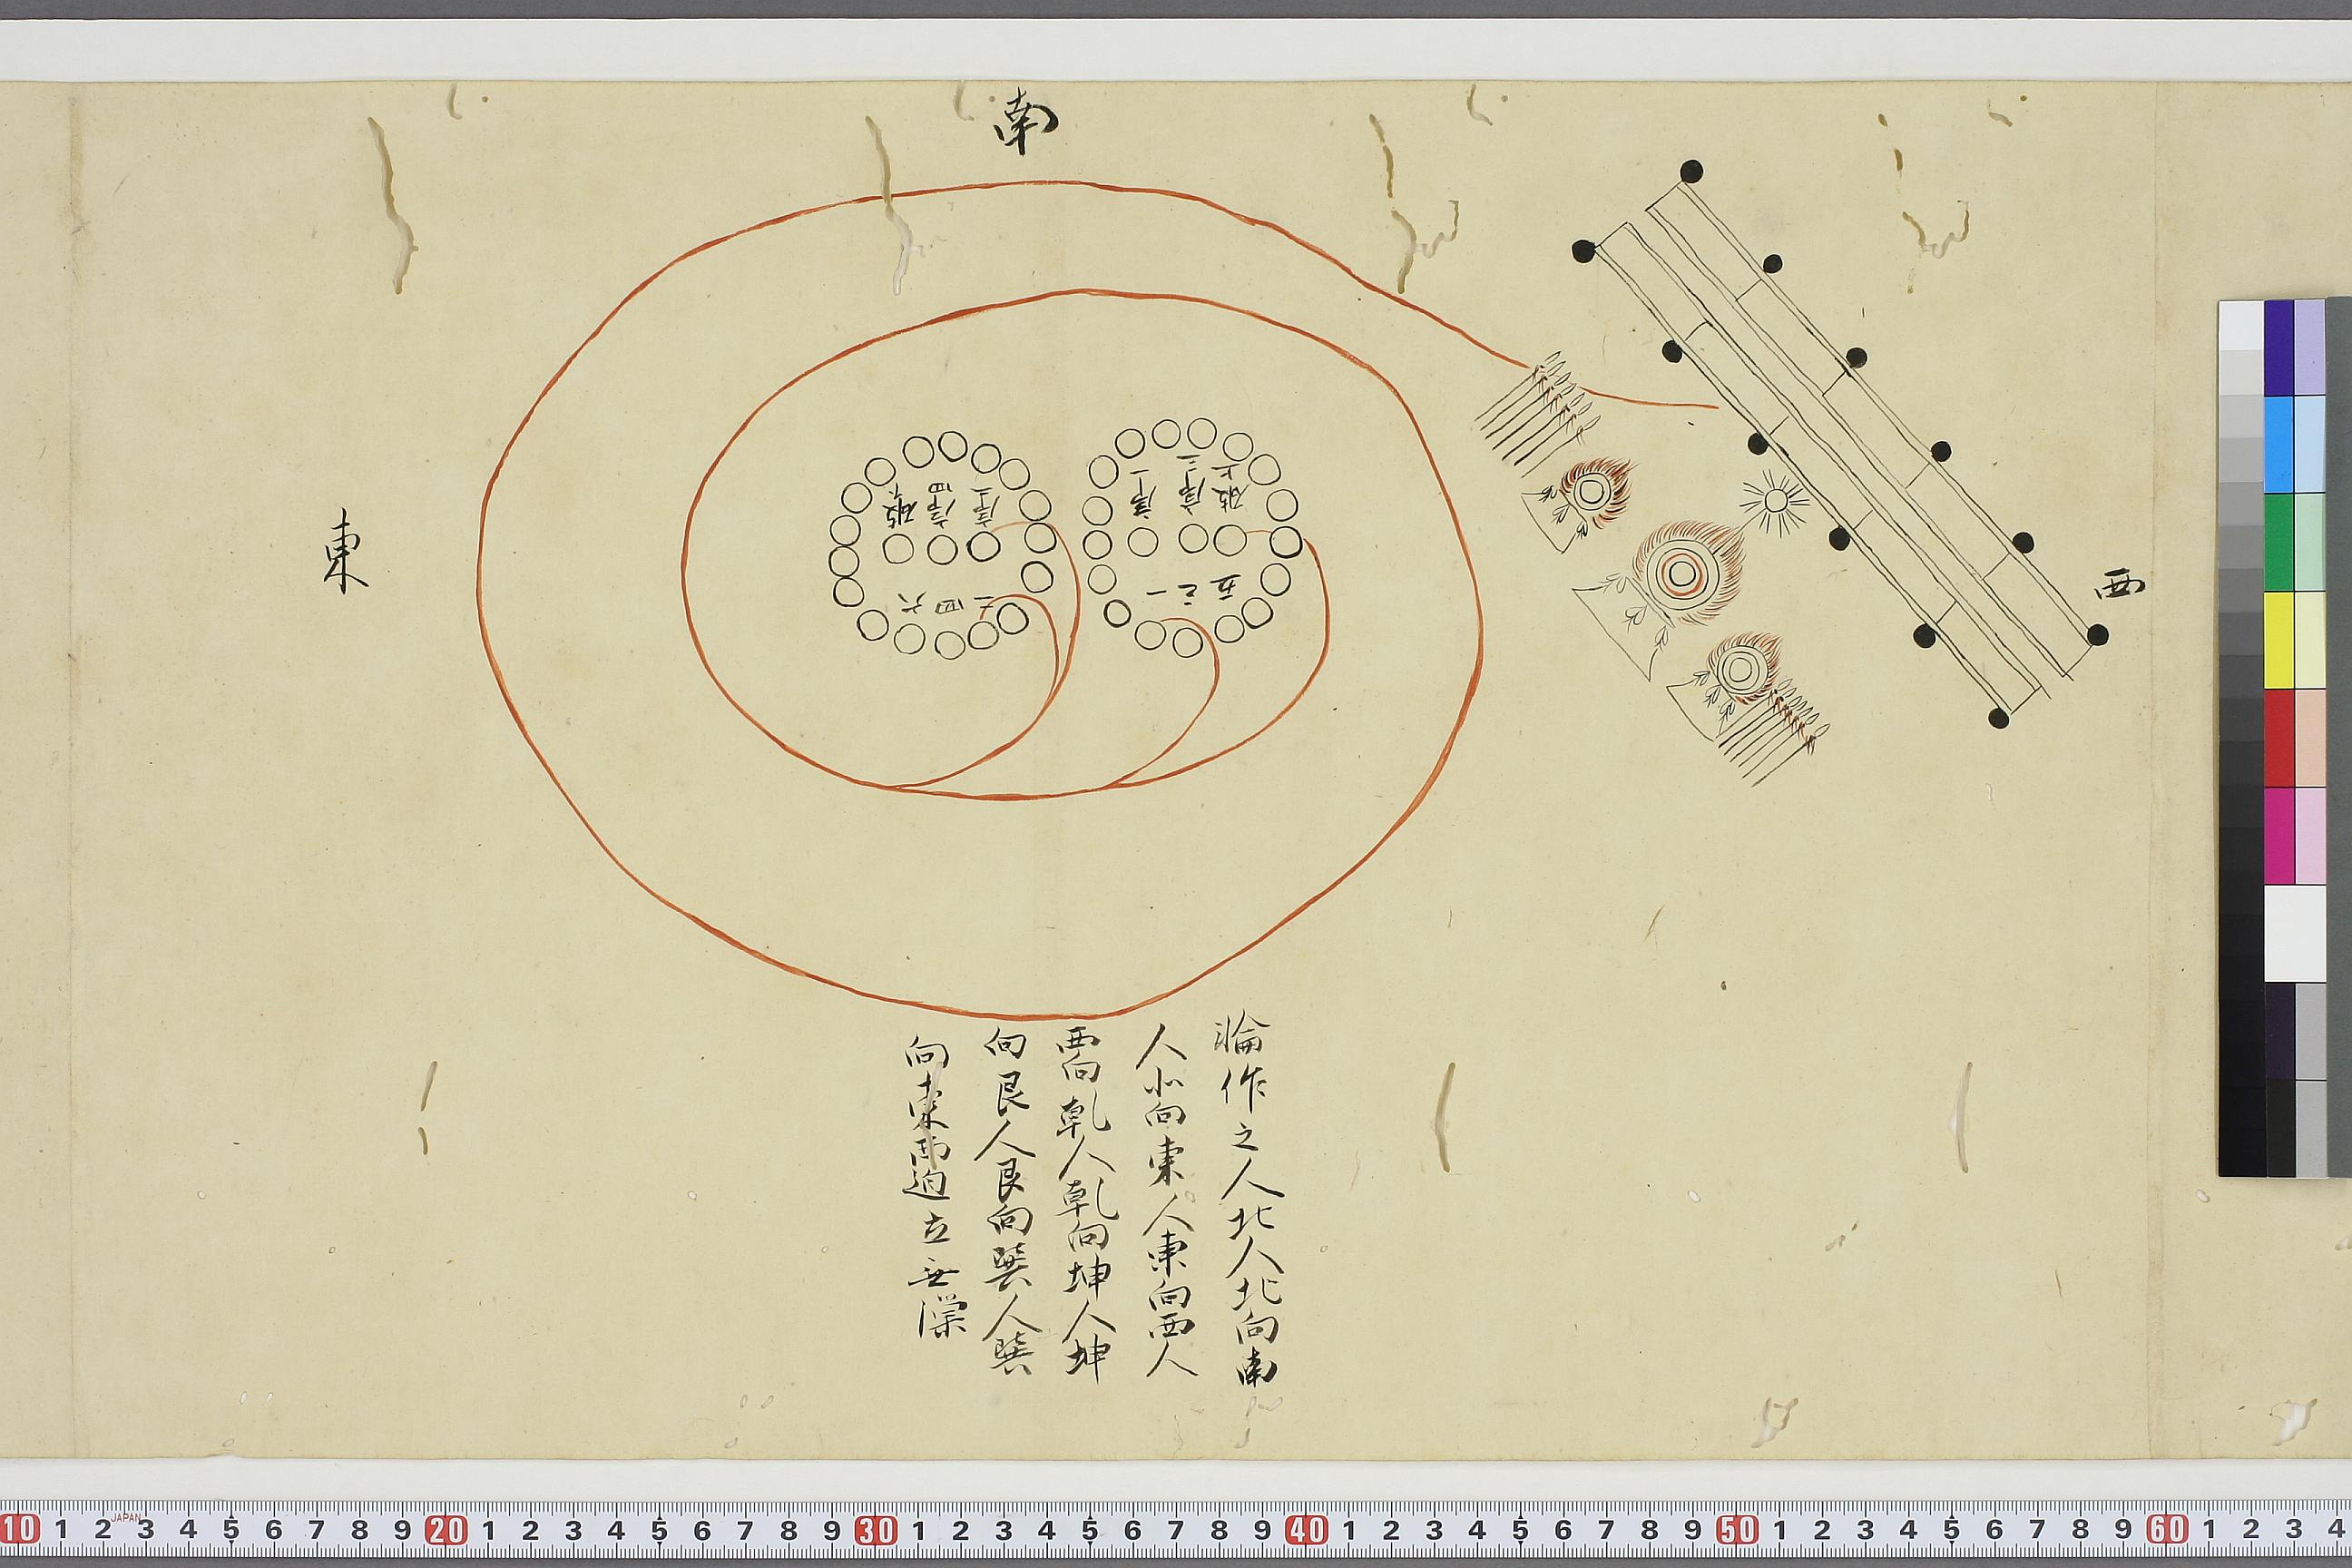 南
東
西
序一
序二
破上
一
三
五
序三
序四
破
二
四
六
輪作之人北人北向南
人北向東人東向西人
西向乾人乾向坤人坤
向艮人艮向巽人巽
向東西迫立無
10 1 2 3 4 5 6 7 8 9 20 1 2 3 4 5 6 7 8 9 30 1 2 3 4 5 6 7 8 9 40 1 2 3 4 5 6 7 8 9 50 1 2 3 4 5 6 7 8 9 60 1 2 3 4
JAPAN